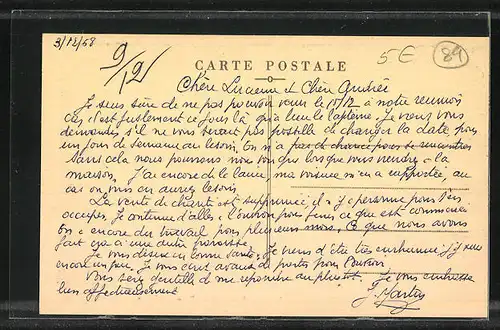 3/12/58
9/12
5€
84
CARTE POSTALE
Chère Lucienne et Chère Andrée
Je suis sûre de ne pas pouvoir venir le 15/12 à notre réunion
car c'est justement ce jour là qu'a lieu le baptême. Je viens vous
demander s'il ne vous serait pas possible de changer la date pour
un jour de semaine au besoin. On n'a pas de chance pour se rencontrer
Sans cela nous pourrions nous voir que lorsque vous viendrez à la
maison. J'ai encore de la laine, ma voisine m'en a rapportée, au
cas où vous en auriez besoin.
La vente de charité est supprimée il n'y a personne pour s'en
occuper. Je continue d'aller à l'ouvroir pour finir ce que est commencé
on a encore du travail pour plusieurs mois. Ce que nous avons
fait ira à une autre paroisse.
Je vous désire en bonne santé. Je viens d'être très enrhumée j'y suis
encore un peu. Je vous écrit avant de partir pour
Vous serez gentille de me répondre au plus tôt. Je vous embrasse
bien affectueusement